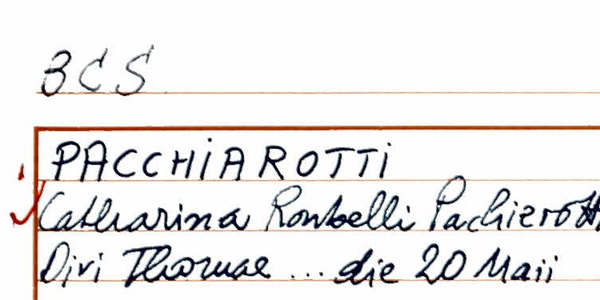 BCS
PACCHIAROTTI
Catharina Rombelli Pachierotti
Divi Thomae ... die 20 Maii